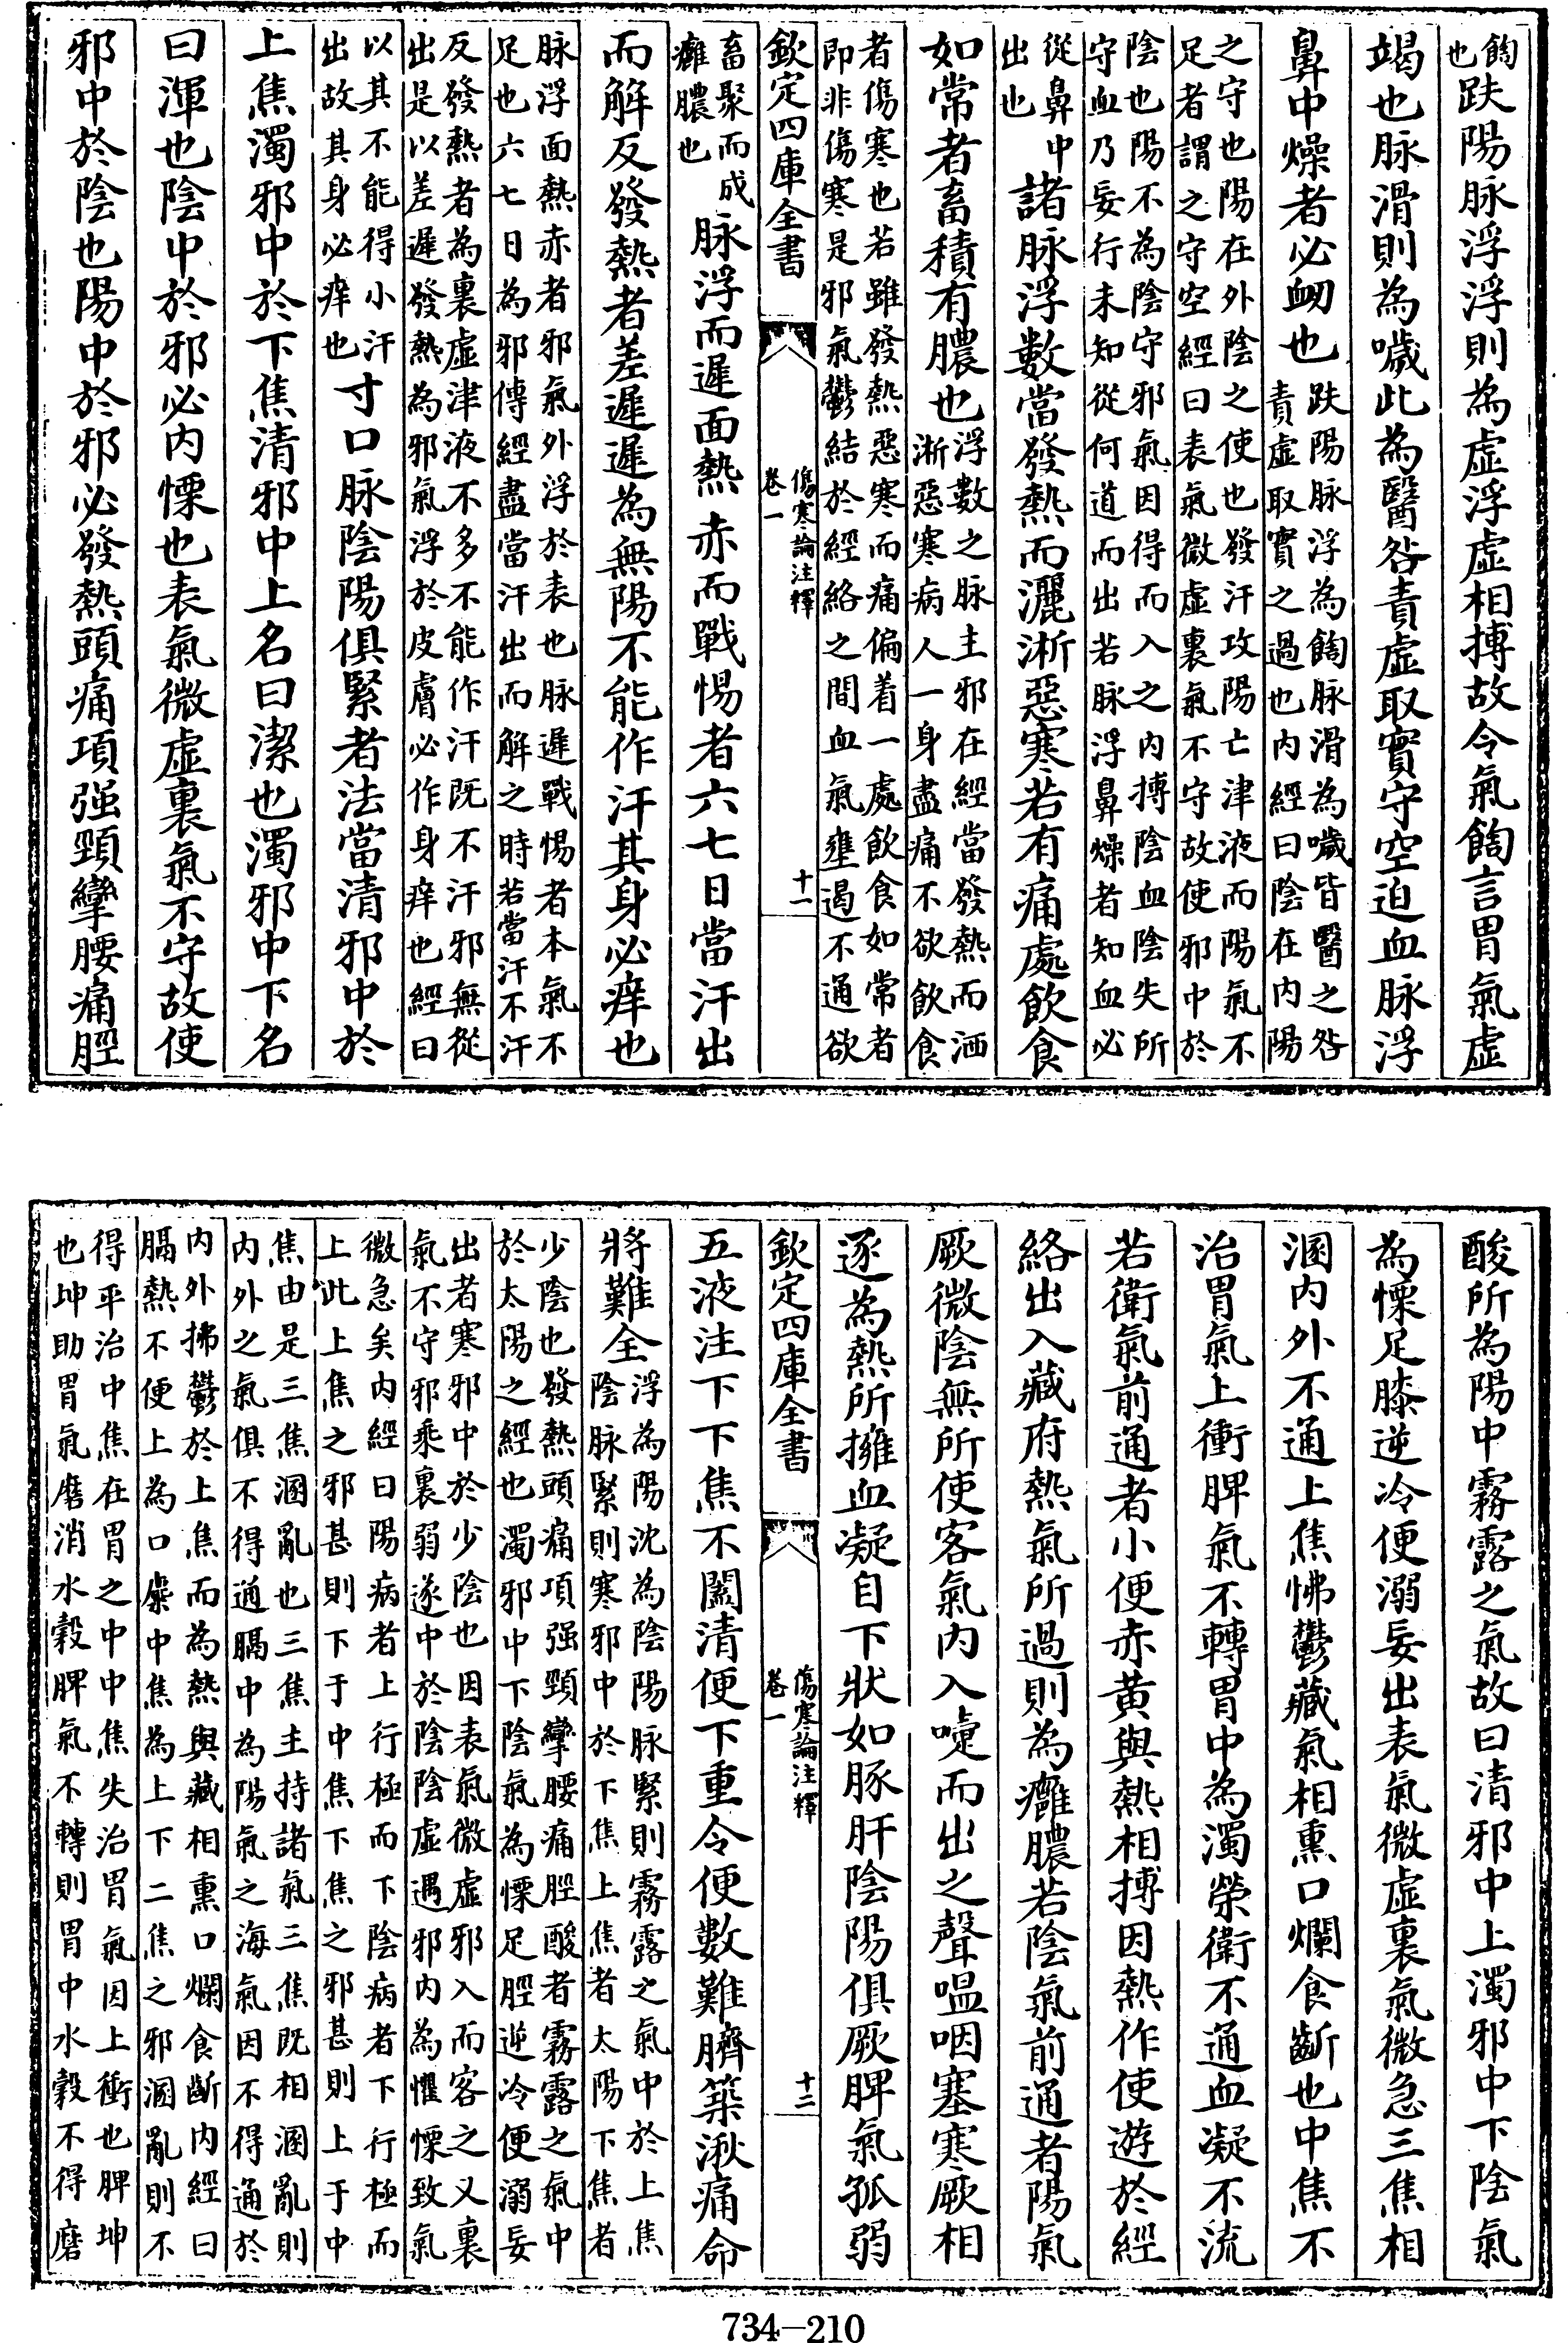 餉
也
趺陽脉浮浮則為虛浮虛相搏故令氣餉言胃氣虛
竭也脉滑則為噦此為醫咎責虛取實守空迫血脉浮
鼻中燥者必衂也
趺陽脉浮為餉脉滑為噦皆醫之咎
責虛取實之過也內經曰陰在內陽
之守也陽在外陰之使也發汗攻陽亡津液而陽氣不
足者謂之守空經曰表氣微虛裏氣不守故使邪中於
陰也陽不為陰守邪氣因得而入之內搏陰血陰失所
守血乃妄行未知從何道而出若脉浮鼻燥者知血必
從鼻中
出也
諸脉浮數當發熱而灑淅惡寒若有痛處飲食
如常者畜積有膿也
浮數之脉主邪在經當發熱而洒
淅惡寒病人一身盡痛不欲飲食
者傷寒也若雖發熱惡寒而痛偏着一處飲食如常者
即非傷寒是邪氣鬱結於經絡之間血氣壅遏不通欲
欽定四庫全書
傷寒論注釋
卷一
十一
畜聚而成
癰膿也
脉浮而遲面熱赤而戰惕者六七日當汗出
而解反發熱者差遲遲為無陽不能作汗其身必痒也
脉浮面熱赤者邪氣外浮於表也脉遲戰惕者本氣不
足也六七日為邪傳經盡當汗出而解之時若當汗不汗
反發熱者為裏虛津液不多不能作汗既不汗邪無從
出是以差遲發熱為邪氣浮於皮膚必作身痒也經曰
以其不能得小汗
出故其身必痒也
寸口脉陰陽俱緊者法當清邪中於
上焦濁邪中於下焦清邪中上名曰潔也濁邪中下名
曰渾也陰中於邪必內慄也表氣微虛裏氣不守故使
邪中於陰也陽中於邪必發熱頭痛項强頸攣腰痛脛
酸所為陽中霧露之氣故曰清邪中上濁邪中下陰氣
為慄足膝逆冷便溺妄出表氣微虛裏氣微急三焦相
溷內外不通上焦怫鬱藏氣相熏口爛食齗也中焦不
治胃氣上衝脾氣不轉胃中為濁榮衛不通血凝不流
若衛氣前通者小便赤黃與熱相搏因熱作使遊於經
絡出入藏府熱氣所過則為癰膿若陰氣前通者陽氣
厥微陰無所使客氣內入嚏而出之聲嗢咽塞寒厥相
逐為熱所擁血凝自下狀如豚肝陰陽俱厥脾氣孤弱
欽定四庫全書
傷寒論注釋
卷一
十二
五液注下下焦不闔清便下重令便數難臍築湫痛命
將難全
浮為陽沈為陰陽脉緊則霧露之氣中於上焦
陰脉緊則寒邪中於下焦上焦者太陽下焦者
少陰也發熱頭痛項强頸攣腰痛脛酸者霧露之氣中
於太陽之經也濁邪中下陰氣為慄足脛逆冷便溺妄
出者寒邪中於少陰也因表氣微虛邪入而客之又裏
氣不守邪乘裏弱遂中於陰陰虛遇邪內為懼慄致氣
微急矣內經曰陽病者上行極而下陰病者下行極而
上此上焦之邪甚則下于中焦下焦之邪甚則上于中
焦由是三焦溷亂也三焦主持諸氣三焦既相溷亂則
內外之氣俱不得通膈中為陽氣之海氣因不得通於
內外拂鬱於上焦而為熱與藏相熏口爛食齗內經曰
膈熱不便上為口糜中焦為上下二焦之邪溷亂則不
得平治中焦在胃之中中焦失治胃氣因上衝也脾坤
也坤助胃氣磨消水穀脾氣不轉則胃中水穀不得磨
734-210